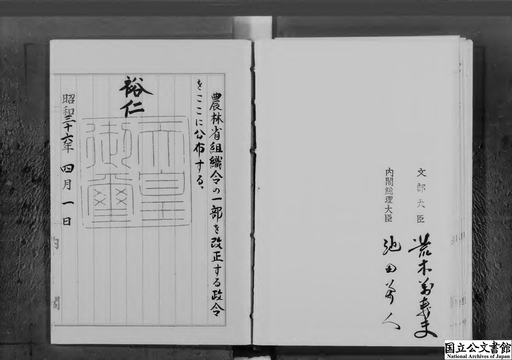 文部大臣
荒木萬壽夫
内閣総理大臣
池田勇人
農林省組織令の一部を改正する政令
をここに公布する。
裕仁
天皇
御璽
昭和三十六年四月一日
内閣
国立公文書館
National Archives of Japan